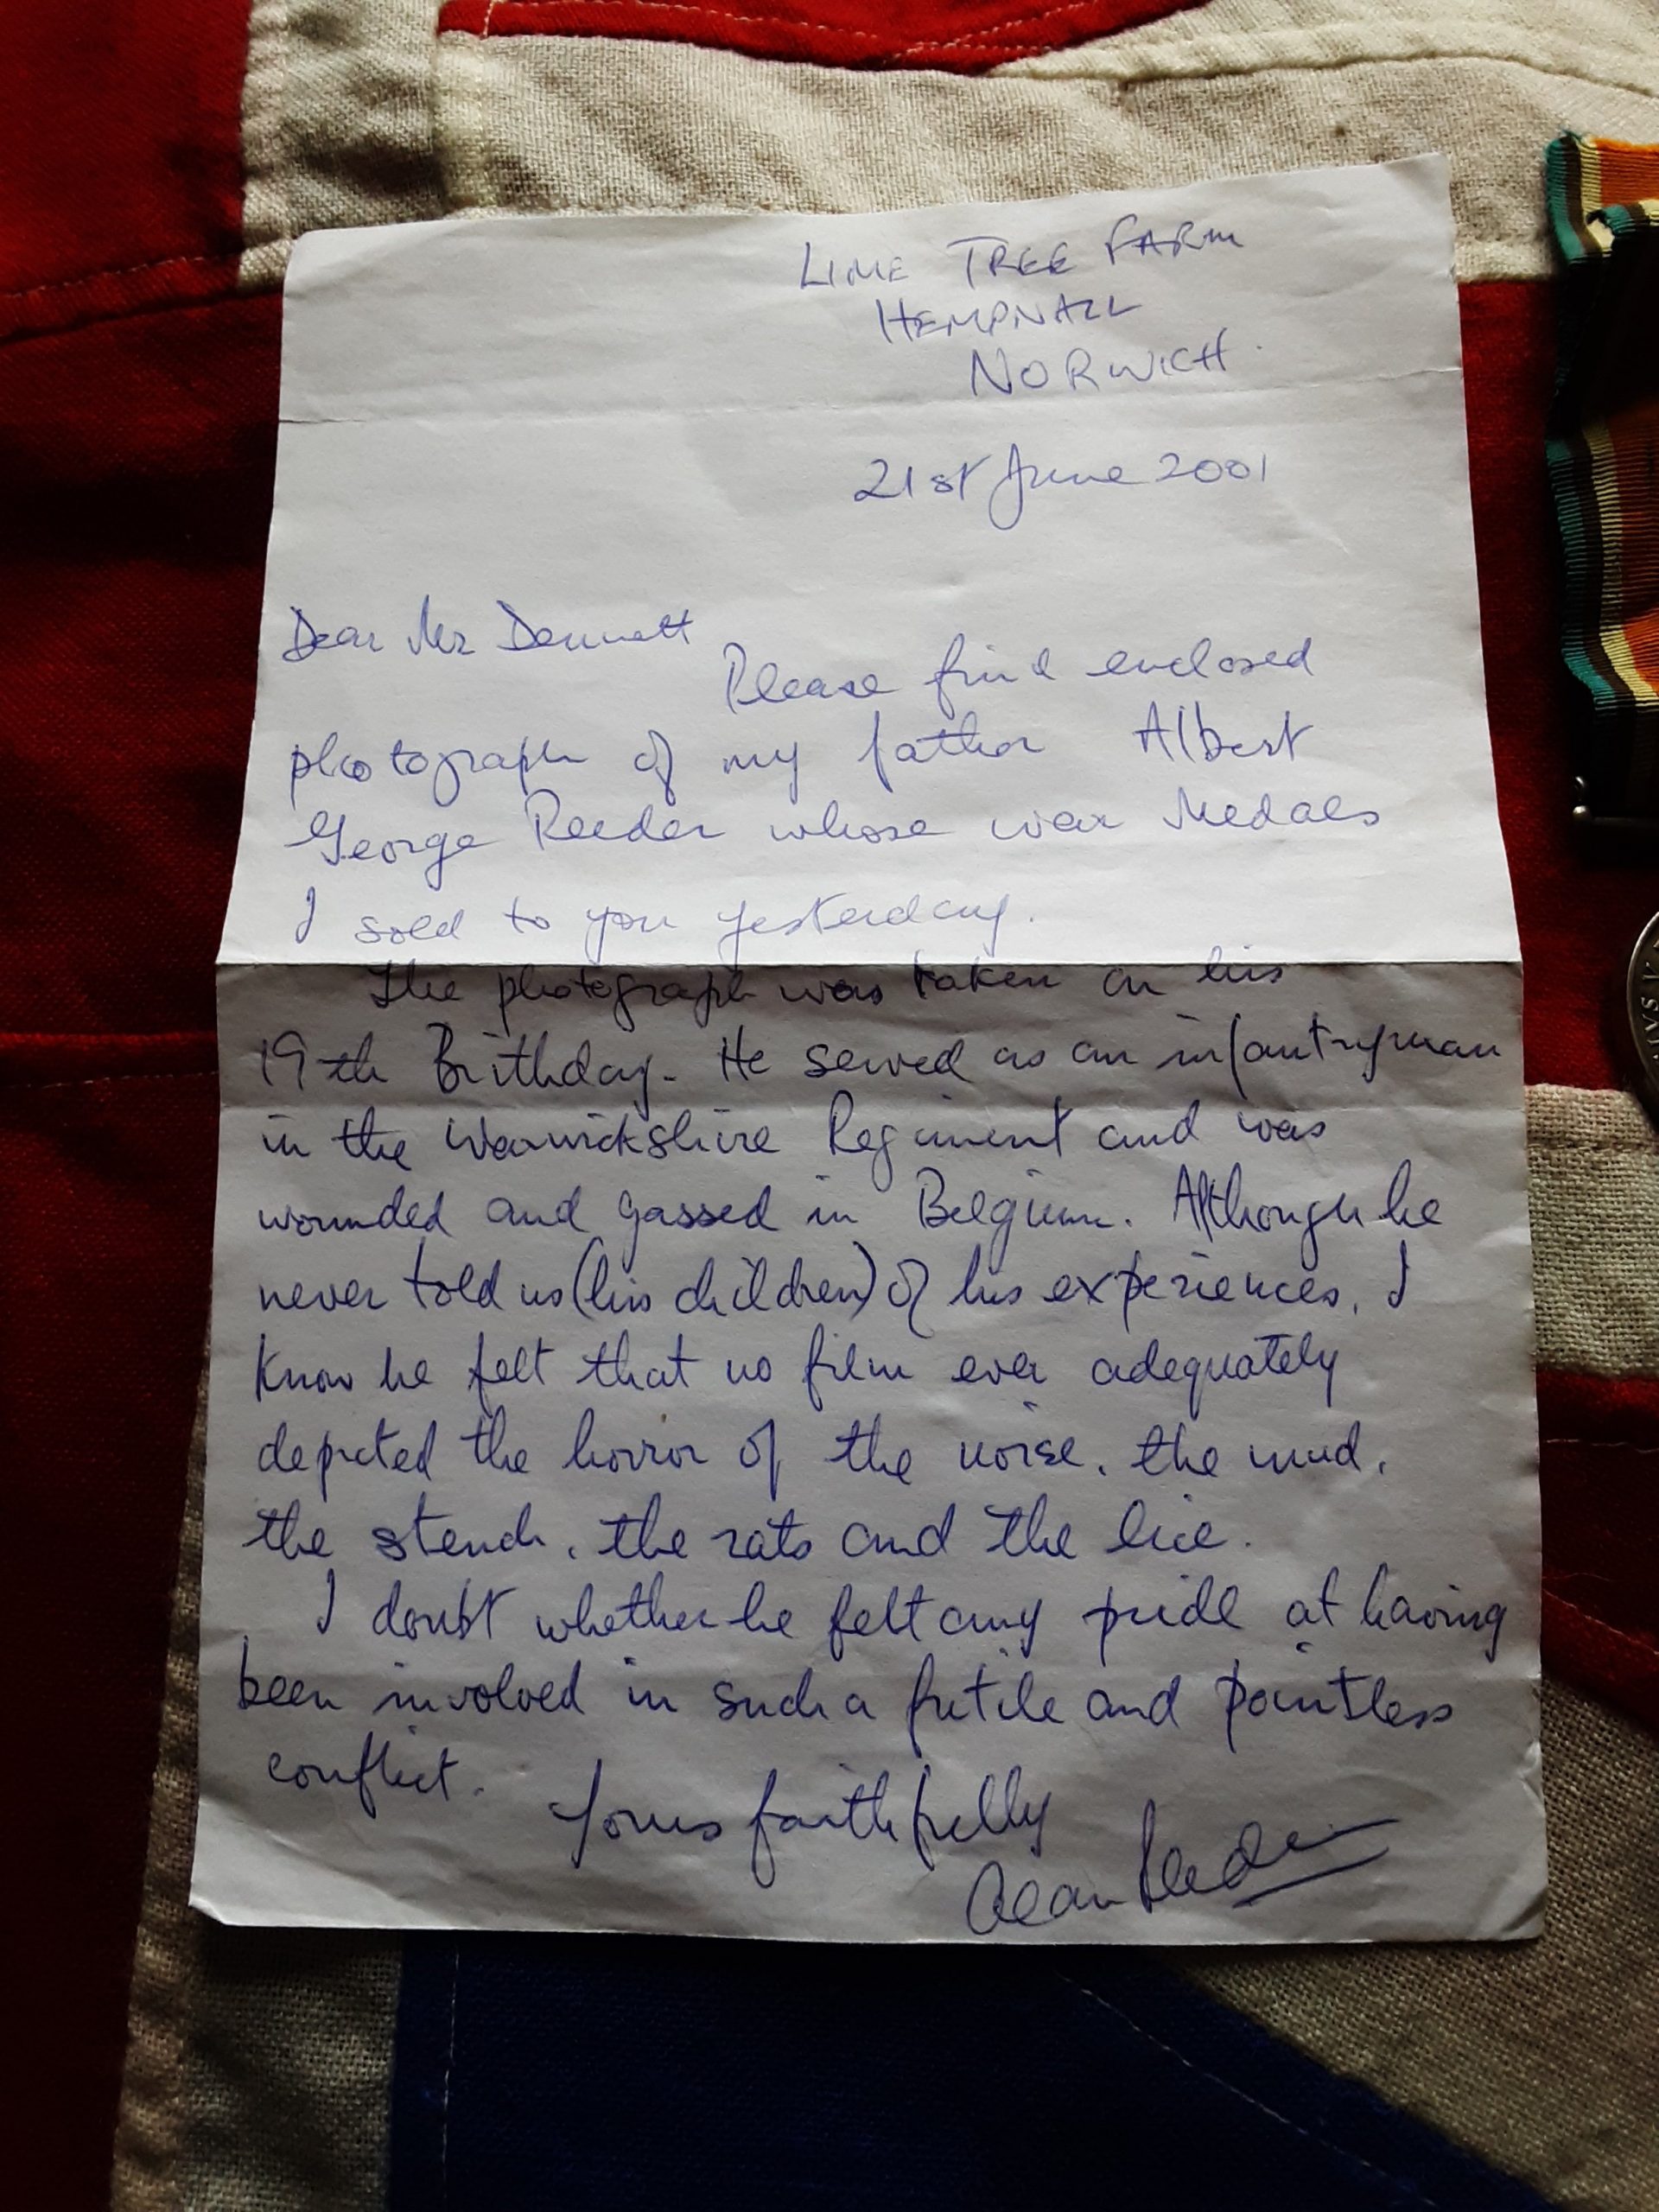 LIME TREE FARM
HEMPNALL
NORWICH.
21st June 2001
Dear Mr Dennett
Please find enclosed
photograph of my father Albert
George Reeder whose war Medals
I sold to you yesterday.
The photograph was taken on his
19th Birthday. He served as an infantryman
in the Warwickshire Regiment and was
wounded and gassed in Belgium. Although he
never told us (his children) of his experiences, I
know he felt that no film ever adequately
depicted the horror of the noise, the mud,
the stench, the rats and the lice.
I doubt whether he felt any pride at having
been involved in such a futile and pointless
conflict.
Yours faithfully
Alan Reeder